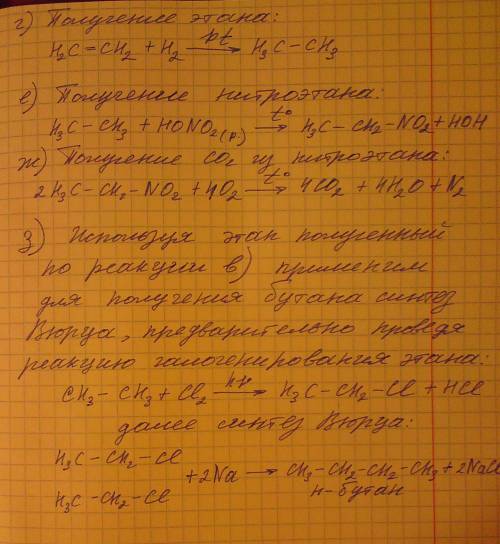 г) Получение этана:
H₂C=CH₂ + H₂ –pt→ H₃C–CH₃
е) Получение нитроэтана:
H₃C–CH₃ + HONO₂(р.) –t°→ H₃C–CH₂–NO₂ + HOH
ж) Получение CO₂ из нитроэтана:
2H₃C–CH₂–NO₂ + 4O₂ –t°→ 4CO₂ + 4H₂O + N₂
з) Используя этан полученный
по реакции в) применим
для получения бутана синтез
Вюрца, предварительно проведя
реакцию галогенирования этана:
CH₃–CH₃ + Cl₂ –hν→ H₃C–CH₂–Cl + HCl
далее синтез Вюрца:
H₃C–CH₂–Cl
+ 2Na → CH₃–CH₂–CH₂–CH₃ + 2NaCl
H₃C–CH₂–Cl
н-бутан